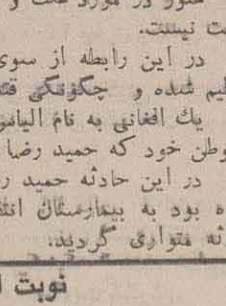 هنوز در مورد علت و
ت نیست.
در این رابطه از سوی
یم شده و چگونگی قت
یك افغانی به نام الیاس
وطن خود که حمید رضا
در این حادثه حمید ر
ه بود به بیمارستان انت
ثه متواری گردید.
نوبت ا